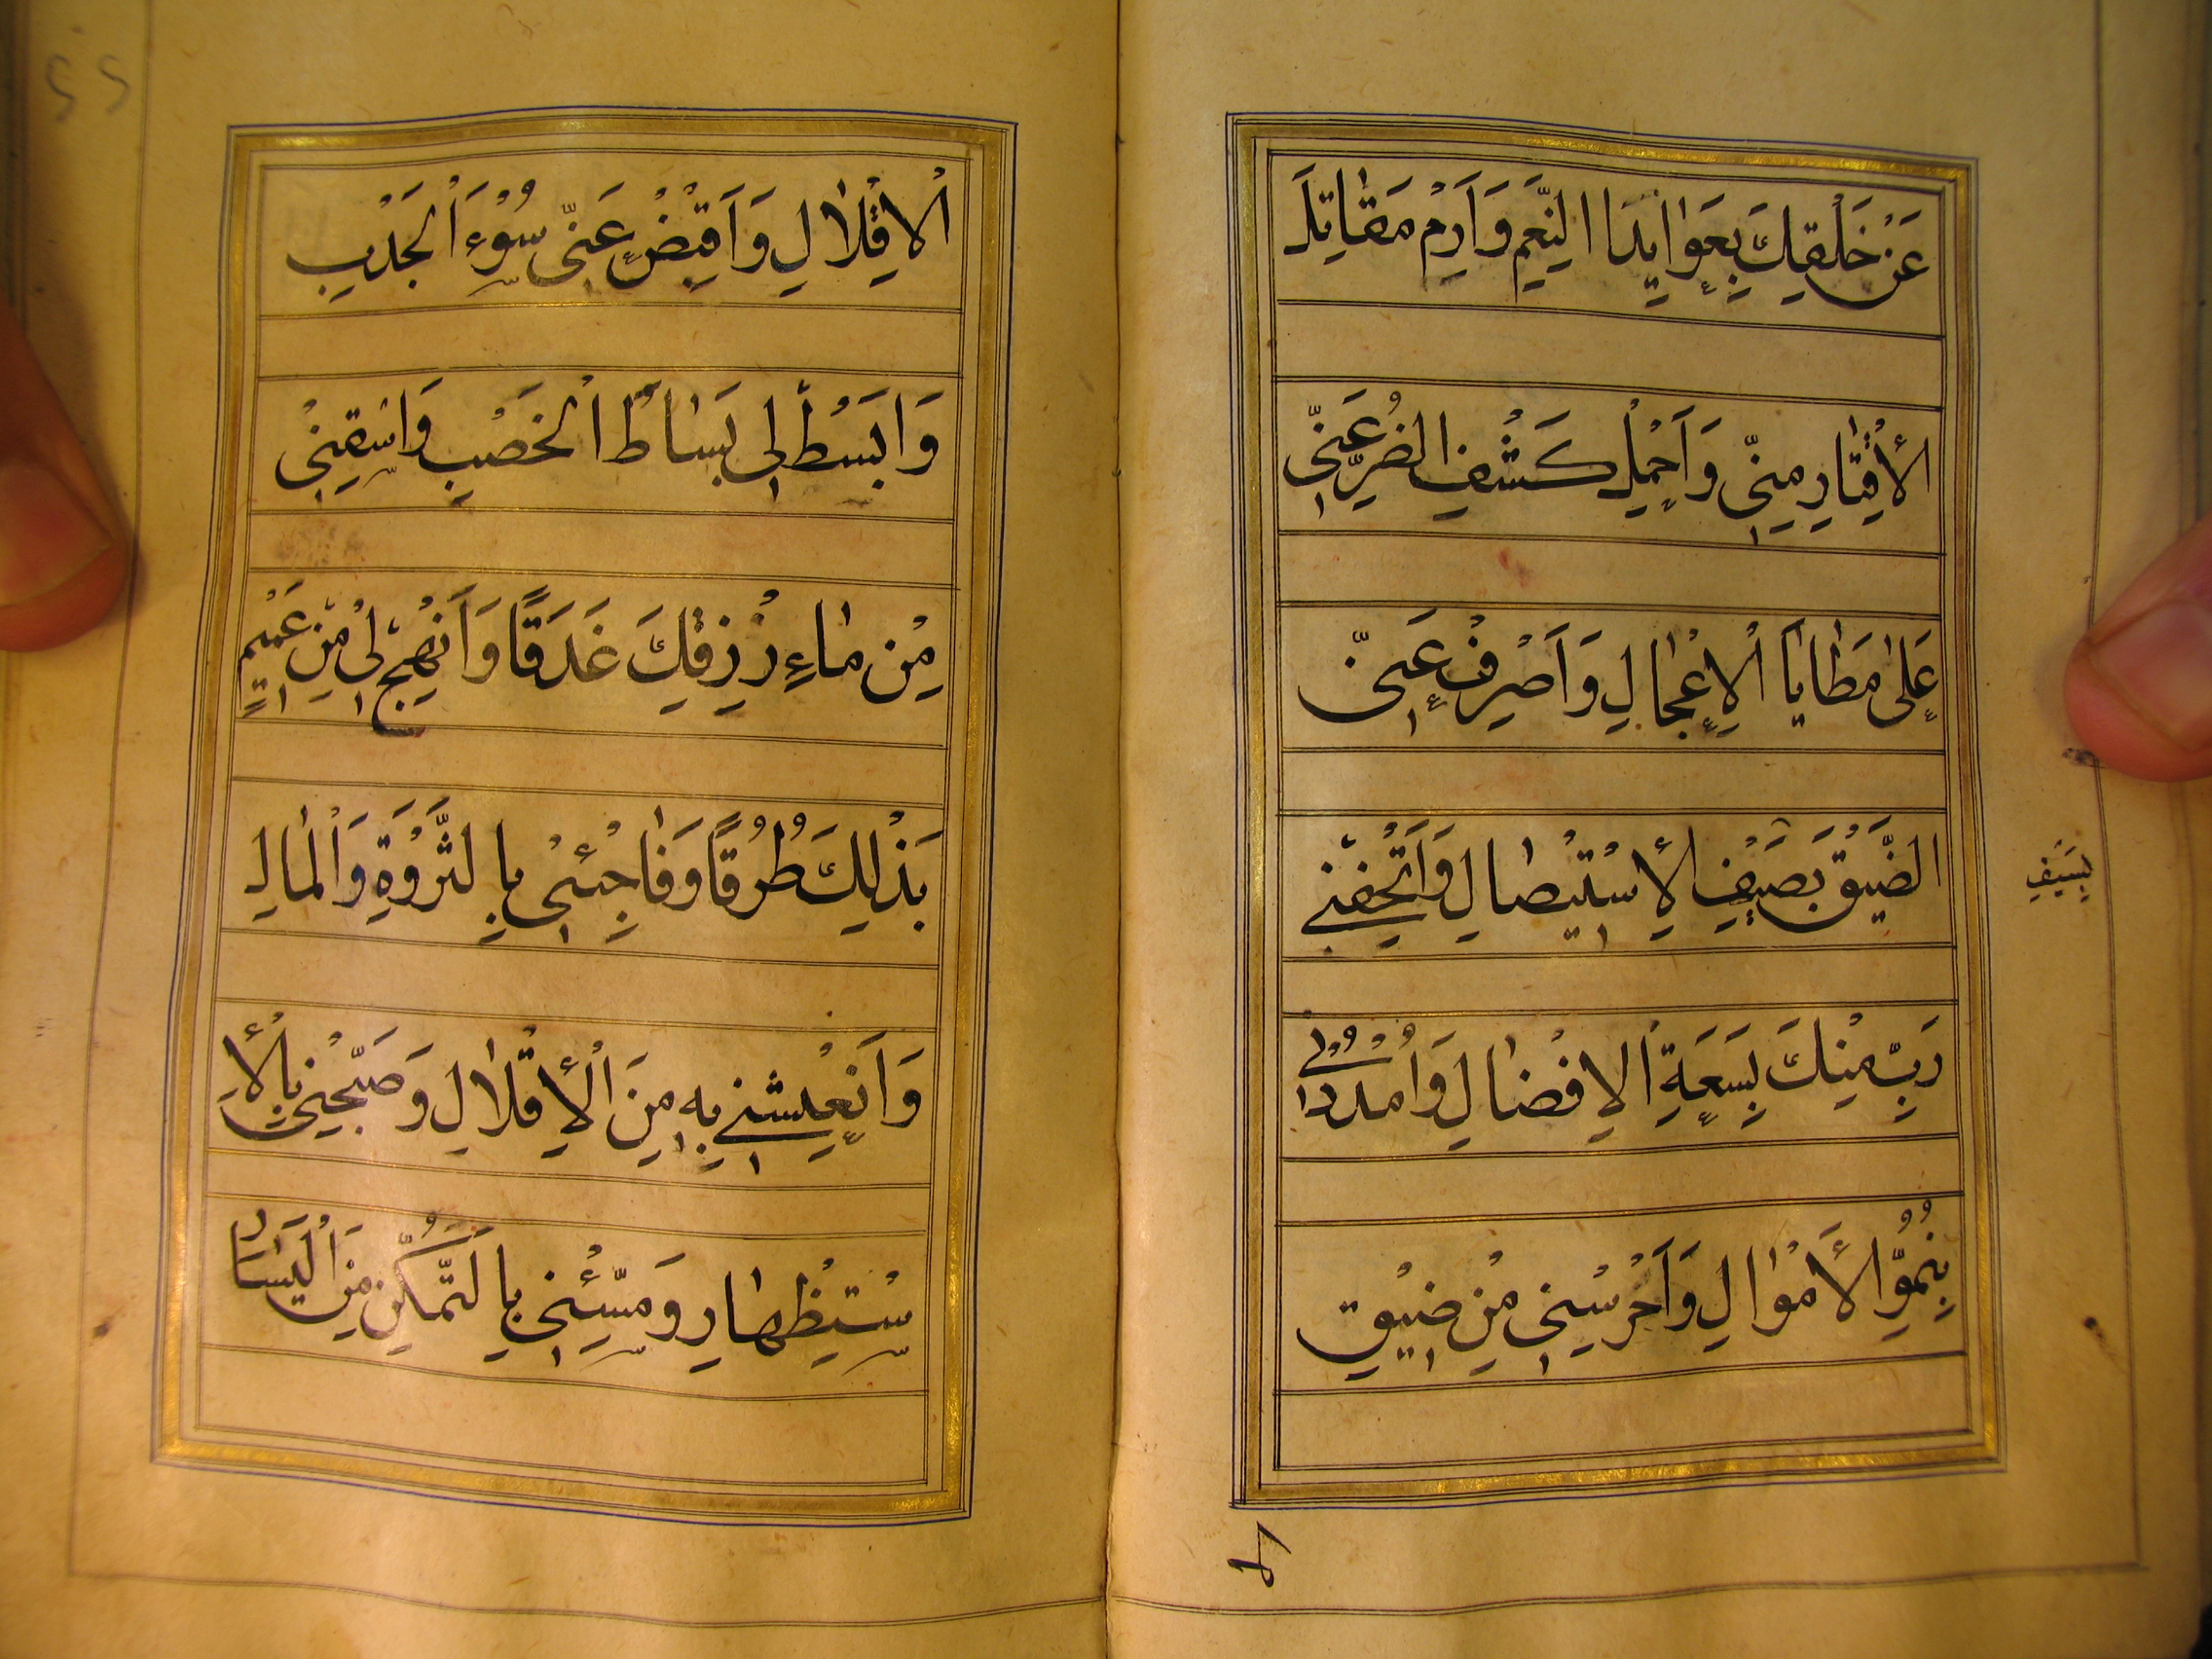 عَنْ خَلْقِكَ بِعَوٰایِدَا النِّعَمِ وَاَرْمِ مَقٰاتِلَ
الْأِقْتٰارِ مِنّی وَاَحْمِلْ كَشْفَ الضُّرِّ عَنّی
عَلٰی مَطٰایَا اْلاِعْجٰالِ وَاَصْرِفْ عَنّی
الضّیْقَ بَصَیْفِ الْأِسْتیْصٰالِ وَاَتْحِفْنی
رَبِّ مِنْكَ بِسَعَةِ الْاِفْضٰالِ وَامْدُدْنی
بِنُمُوِّ الْأَمْوٰالِ وَاَحْرُسْنی مِنْ ضیْقِ
بِسَیْفِ
الْاِقْلٰالِ وَاَقْبِضْ عَنّی سُوْءَ الْجَدْبِ
وَابَسُطْ لی بَسٰاطَ الْخَصْبِ وَاسْقِنی
مِنْ مٰاءِ رِزْقِكَ غَدَقًا وَاَنْهِجْ لی مِنْ عَمیْمٍ
بَذْلِكَ طُرُقًا وَفٰاجِئْنی بِالثَّرْوَةِ وَالْمٰالِ
وَاَنْعِشْنی بِهِ مِنَ الْأِقْلٰالِ وَصَبِّحْنی بِالْأِ
سْتِظْهٰارِ وَمَسِّئْنی بِالتَّمَكُّنِ مِنَ الْیَسٰارِ